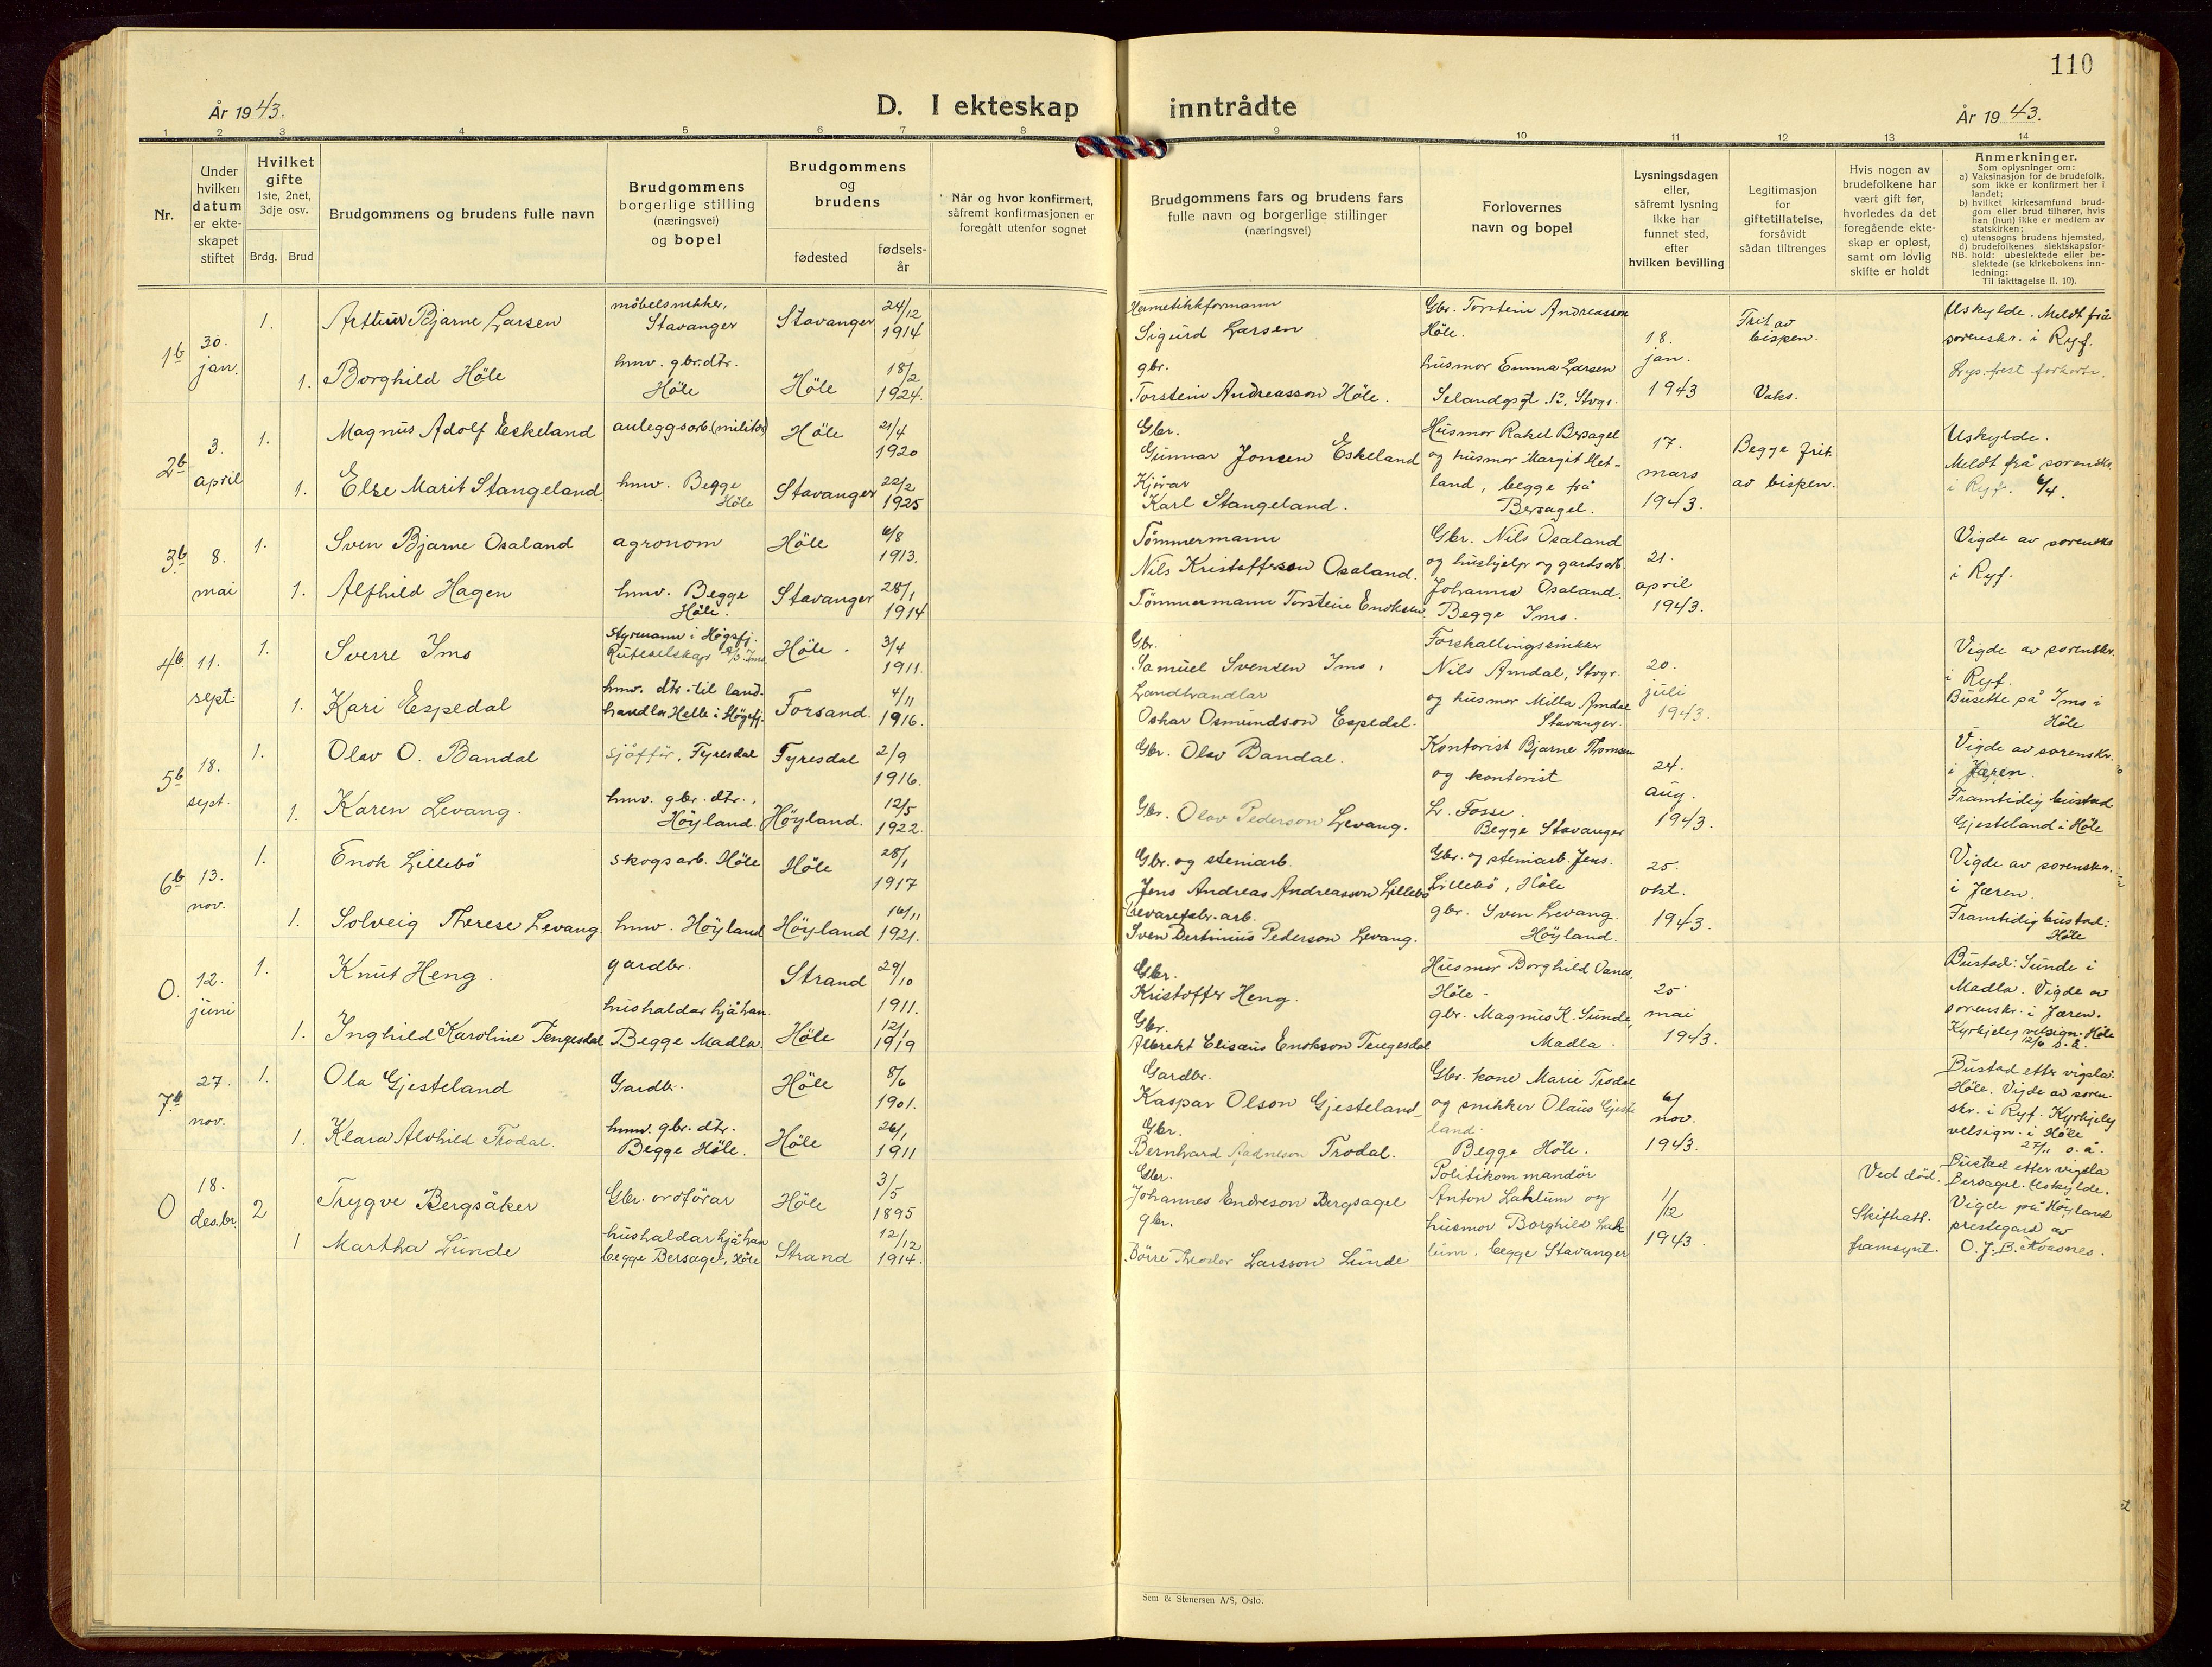 110
År 1943.
D. I ekteskap inntrådte
År 1943.
1 2 3 4 5 6 7 8 9 10 11 12 13 14
Nr.
Under hvilken datum er ekteskapet stiftet
Hvilket gifte 1ste, 2net, 3dje osv.
Brdg. Brud
Brudgommens og brudens fulle navn
Brudgommens borgerlige stilling (næringsvei) og bopel
Brudgommens og brudens
fødested
fødselsår
Når og hvor konfirmert, såfremt konfirmasjonen er foregått utenfor sognet
Brudgommens fars og brudens fars fulle navn og borgerlige stillinger (næringsvei)
Forlovernes navn og bopel
Lysningsdagen eller, såfremt lysning ikke har funnet sted, efter hvilken bevilling
Legitimasjon for giftetillatelse, forsåvidt sådan tiltrenges
Hvis nogen av brudefolkene har vært gift før, hvorledes da det foregående ekteskap er opløst, samt om lovlig skifte er holdt
Anmerkninger.
Som oplysninger om:
a) Vaksinasjon for de brudefolk, som ikke er konfirmert her i landet;
b) hvilket kirkesamfund brudgom eller brud tilhører, hvis han (hun) ikke er medlem av statskirken;
c) utensogns brudens hjemsted,
d) brudefolkenes slektskapsforhold: ubeslektede eller beslektede (se kirkebokens innledning:
NB.
Til iakttagelse II. 10).
1b 30. jan. 1. Arthur Bjarne Larsen møbelsnekker, Stavanger Stavanger 24/12 1914
1. Borghild Höle hmv. gbr.dtr. Höle Höle 18/2 1924.
Hermetikkformann Sigurd Larsen
gbr. Torstein Andreasson Höle.
Gbr. Torstein Andreasson Höle.
husmor Emma Larsen
Selandsgt. 12, Stvgr.
18. jan. 1943
Frit av bispen.
Vaks.
Uskylde. Meldt frå sorenskr. i Ryf.
2b 3. april 1. Magnus Adolf Eskeland anleggsarb. (militær) Höle 21/4 1920
1. Else Marit Stangeland hmv. Begge Höle Stavanger 22/2 1925
Gbr. Gunnar Jonsen Eskeland
Kjörar Karl Stangeland.
Husmor Rakel Bersagel og husmor Margit Hetland, begge frå Bersagel.
17. mars 1943.
Begge frit. av bispen.
Uskylde.
Meldt frå sorenskr. i Ryf. 6/4.
3b 8. mai 1. Sven Bjarne Osaland agronom Höle 6/8 1913.
1. Alfhild Hagen hmv. Begge Höle. Stavanger 28/1 1914
Tømmermann Nils Kristoffersen Osaland.
Tømmermann Torstein Enoksen
Gbr. Nils Osaland og hushjelp og gardsarb. Johanna Osaland. Begge Ims.
21. april 1943.
Vigde av sorenskr. i Ryf.
4b 11. sept. 1. Sverre Ims Styrmann i Högsfj. Ruteselskap A/S Ims. Höle. 3/4 1911.
1. Kari Espedal hmv. dtr. til landhandlar Helle i Högsfj. Forsand. 4/11 1916.
Gbr. Samuel Svensen Ims,
Landhandlar Oskar Osmundson Espedal.
Forskallingssnikkar Nils Amdal, Stvgr. og husmor Milla Amdal Stavanger.
20. juli 1943.
Vigde av sorenskr. i Ryf.
Busette på Ims i Höle
5b 18. sept. 1. Olav O. Bandal sjåffør, Fyresdal Fyresdal 2/9 1916.
1. Karen Levang. hmv. gbr. dtr., Höyland. Höyland. 12/5 1922.
Gbr. Olav Bandal.
Gbr. Olav Pederson Levang.
Kontorist Bjarne Thomsen og kontorist L. Fosse. Begge Stavanger
24. aug. 1943.
Vigde av sorenskr. i Jæren.
Framtidig bustad Gjesteland i Höle
6b 13. nov. 1. Enok Lillebö skogsarb. Höle Höle 28/1 1917
1. Solveig Therese Levang hmv. Höyland Höyland 16/11 1921.
Gbr. og steinarb. Jens Andreas Andreasson Lillebö
Trevarefabr. arb. Sven Bertinius Pederson Levang.
Gbr. og steinarb. Jens. Lillebö, Höle
gbr. Sven Levang. Höyland.
25. okt. 1943.
Vigde av sorenskr. i Jæren.
Framtidig bustad: Höle
0. 12. juni 1. Knut Heng. gardbr. Strand 29/10 1911.
1. Inghild Karoline Tengesdal hushaldar hjå han. Begge Madla. Höle 12/1 1919
Gbr. Kristoffer Heng.
Gbr. Albrekt Elisæus Enokson Tengesdal
Husmor Borghild Vanes, Höle.
gbr. Magnus K. Sunde, Madla.
25 mai 1943.
Bustad: Sunde i Madla. Vigde av sorenskr. i Jæren. Kyrkjeleg velsign. Höle 12/6 s.å.
7b 27. nov. 1. Ola Gjesteland Gardbr. Höle 8/6 1901.
1. Klara Alvhild Trodal. hmv. gbr. dtr. Begge Höle. Höle 26/1 1911
Gardbr. Kaspar Olson Gjesteland
Gbr. Bernhard Aadneson Trodal.
Gbr. kone Marie Trodal og snikker Olaus Gjesteland. Begge Höle.
6/ nov. 1943.
Bustad etter vigsla: Höle. Vigde av sorenskr. i Ryf. Kyrkjeleg velsign. i Höle 27/11 s.å.
0 18. desbr. 2 Trygve Bergsåker Gbr. ordförar Höle 3/5 1895
1 Martha Lunde hushaldar hjå han begge Bersagel, Höle Strand 12/12 1914.
Gbr. Johannes Endreson Bergsagel
gbr. Börre Theodor Larsson Lunde
Politikommandör Anton Laklum og husmor Borghild Laklum, begge Stavanger
1/12 1943.
Ved död. Skifteatt. framsynt.
Bustad etter vigsla Bersagel. Uskylde. Vigde på Höyland prestegard av O. J. B. Kvasnes.
Sem & Stenersen A/S, Oslo.